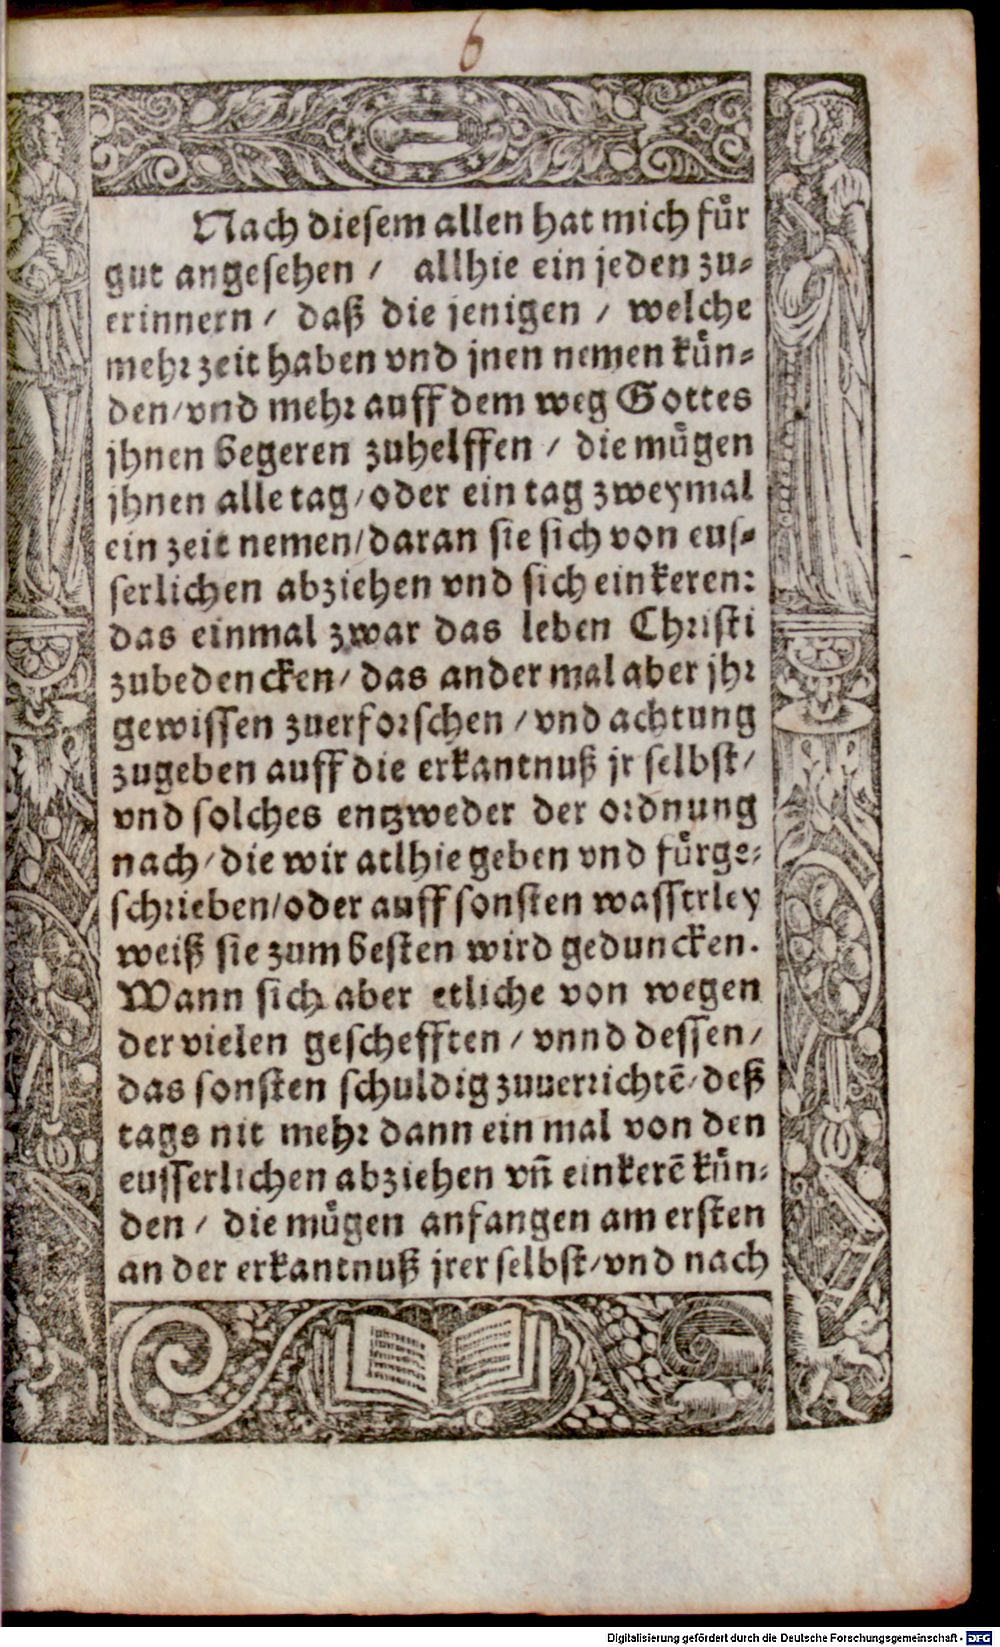 6
Nach diesem allen hat mich fuͤr
gut angesehen / allhie ein jeden zu⸗
erinnern / daß die jenigen / welche
mehr zeit haben vnd jnen nemen kuͤn⸗
den/vnd mehr auff dem weg Gottes
jhnen begeren zuhelffen / die muͤgen
jhnen alle tag/oder ein tag zweymal
ein zeit nemen/daran sie sich von eus⸗
serlichen abziehen vnd sich einkeren:
das einmal zwar das leben Christi
zubedencken/das ander mal aber jhr
gewissen zuerforschen /vnd achtung
zugeben auff die erkantnuß jr selbst/
vnd solches entzweder der ordnung
nach/die wir atlhie geben vnd fuͤrge⸗
schrieben/oder auff sonsten wasserley
weiß sie zum besten wird geduncken.
Wann sich aber etliche von wegen
der vielen geschefften / vnnd dessen/
das sonsten schuldig zuuerrichtē/deß
tags nit mehr dann ein mal von den
eusserlichen abziehen vñ einkerē kuͤn⸗
den / die muͤgen anfangen am ersten
an der erkantnuß jrer selbst/vnd nach
Digitalisierung gefördert durch die Deutsche Forschungsgemeinschaft - DFG